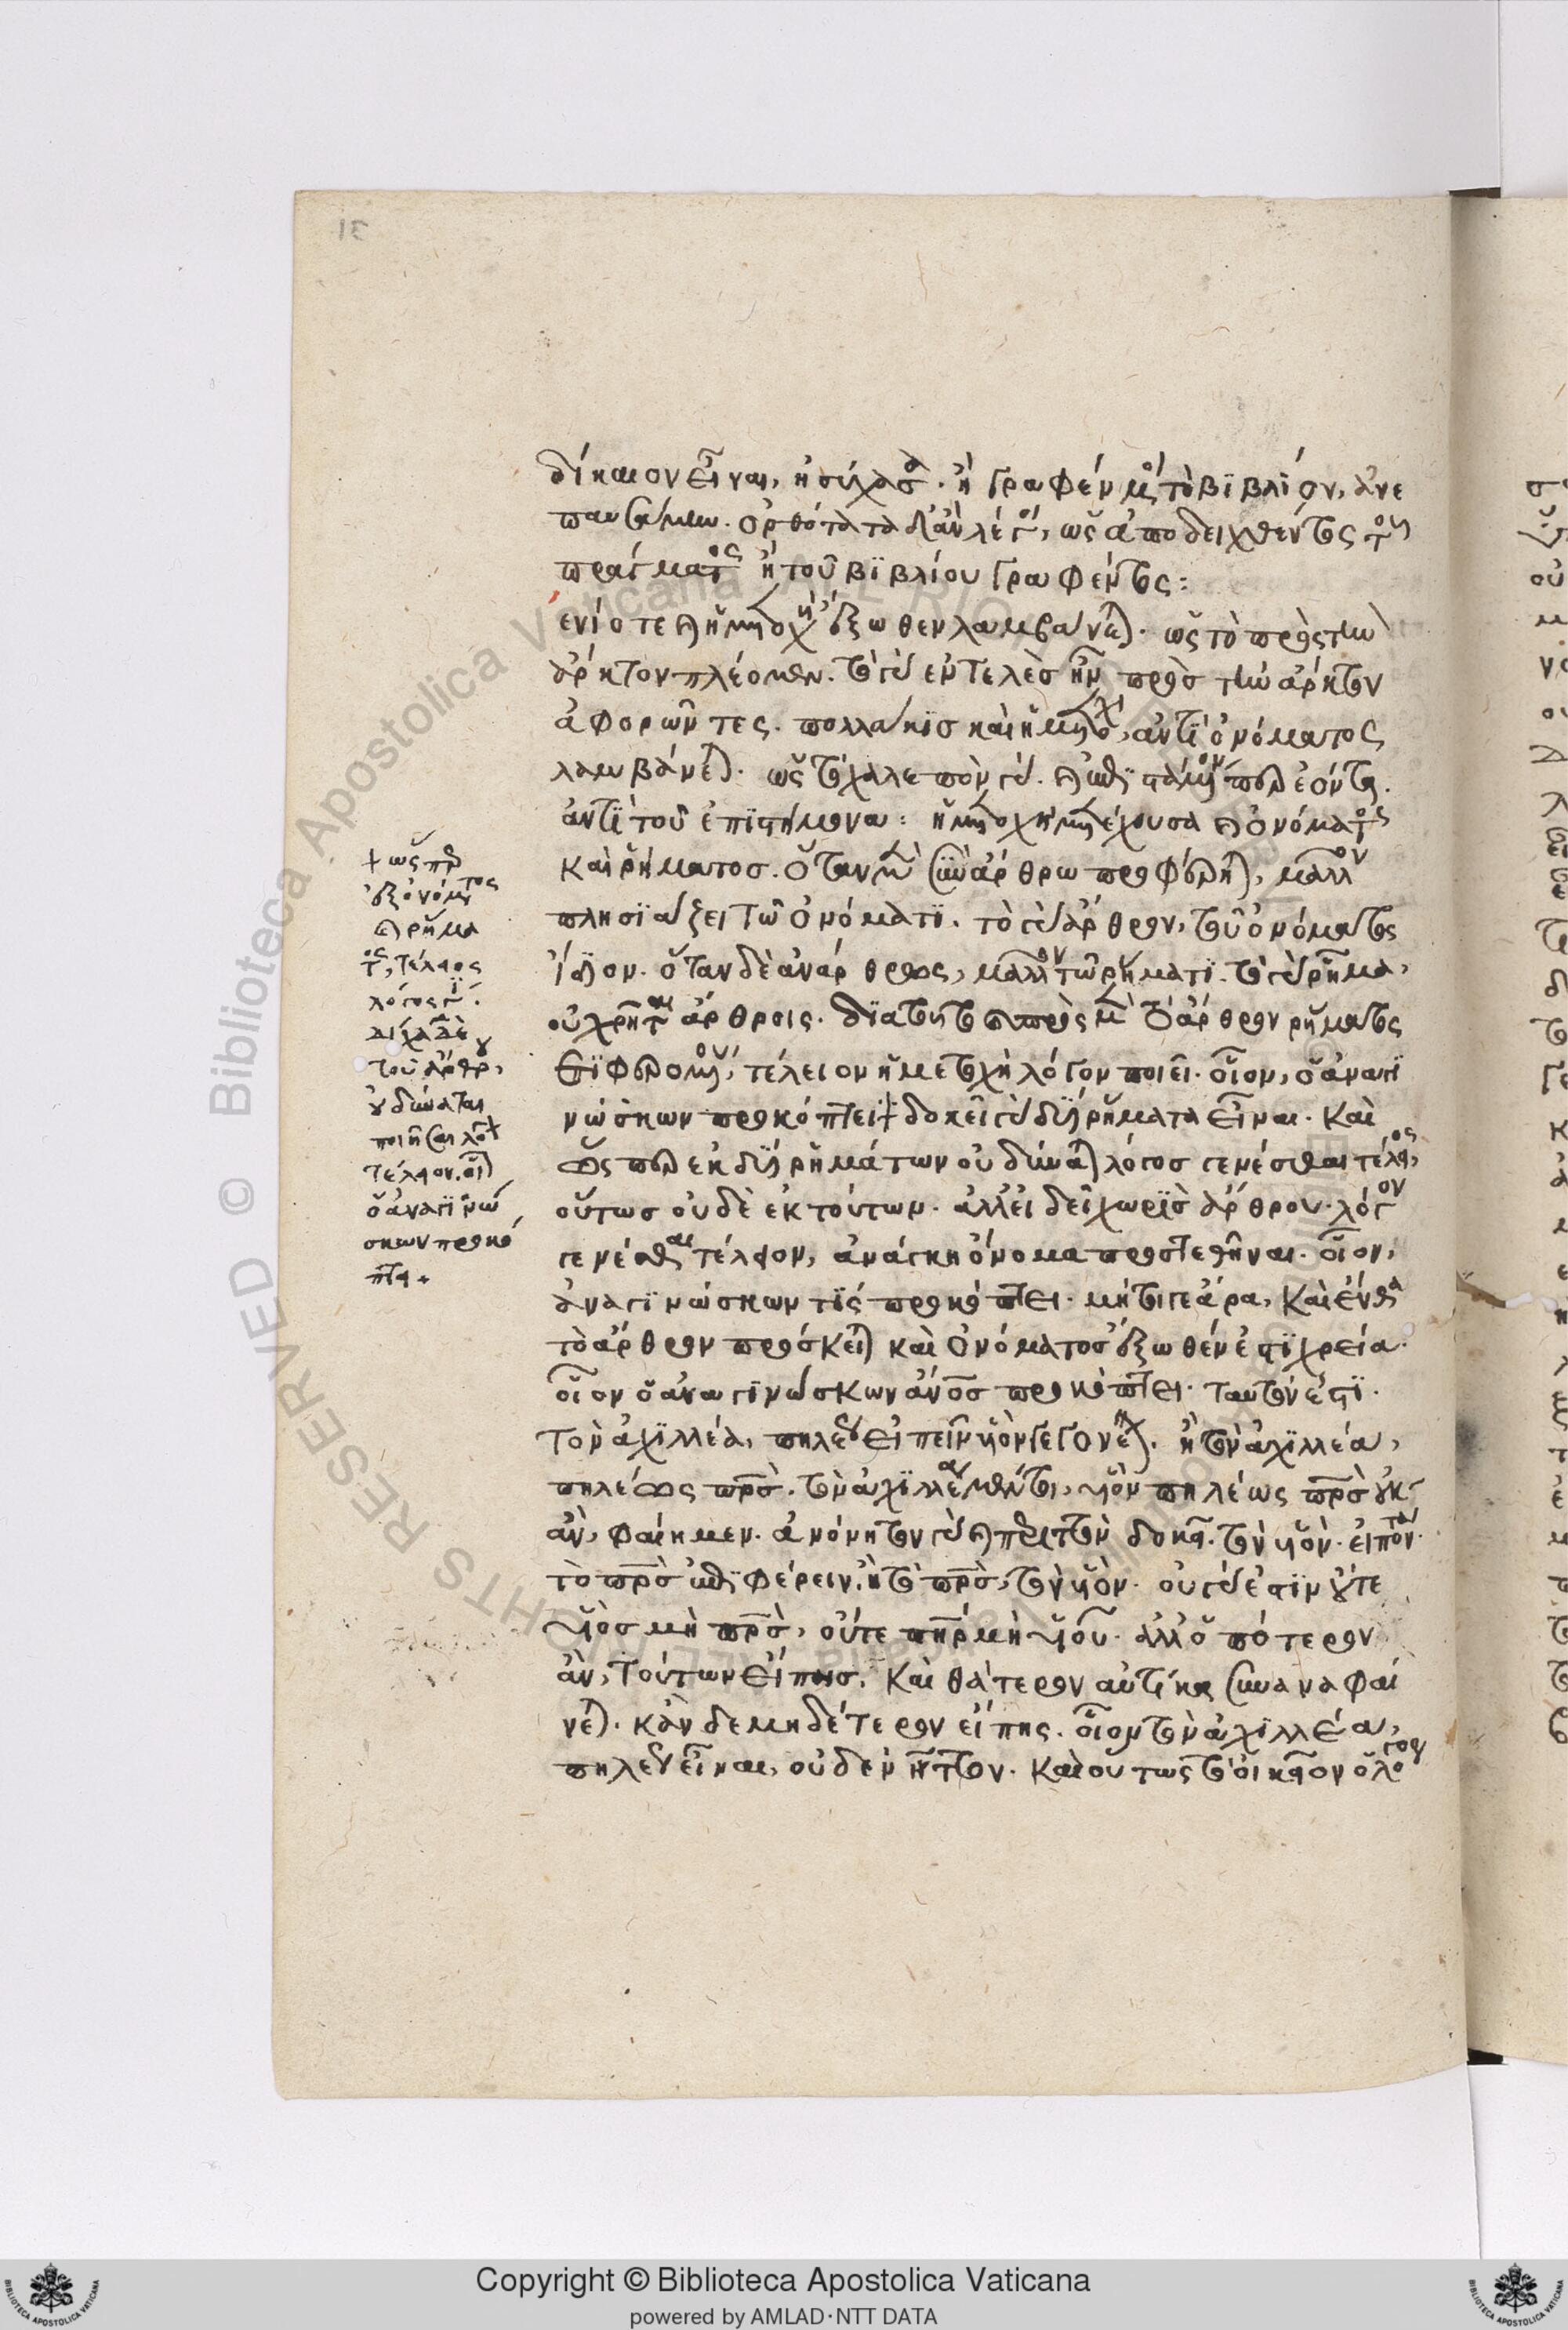 15
δίκαιον εἶναι, ἡσύχασα. ἢ γραφέν μοι τὸ βιβλίον, ἀνε
παυσάμην. ὀρθότατα δ' ἂν λέγοι, ὡς ἀποδειχθέντος τοῦ
πράγματος ἢ τοῦ βιβλίου γραφέντος:
ἐνίοτε δὲ ἡ μετοχὴ ἔξωθεν λαμβάνεται. ὡς τὸ πρὸς τὴν
ἄρκτον πλέομεν. τὸ γὰρ ἐντελὲς ἦν πρὸς τὴν ἄρκτον
ἀφορῶντες. πολλάκις καὶ ἡ μετοχὴ, ἀντὶ ὀνόματος
λαμβάνεται. ὡς τὸ χαλεπὸν γὰρ
ἀντὶ τοῦ ἐπιστήμονα: ἡ μετοχὴ μετέχουσα ὀνόματος
καὶ ῥήματος. ὅταν μὲν σὺν ἄρθρω προφέρηται, μᾶλλον
πλησιάζει τῶ ὀνόματι. τὸ γὰρ ἄρθρον, τοῦ ὀνόματος
ἴδιον. ὅταν δὲ ἀνάρθρως, μᾶλλον τῶ ῥήματι. τὸ γὰρ ῥῆμα,
οὐ χρῆται ἄρθροις. διατοῦτο μετὰ ἄρθρον ῥήματος
ἐπιφερομένου, τέλειον ἡ μετοχὴ λόγον ποιεῖ. οἷον, ὁ ἀναγι
νώσκων προκόπτει + δοκεῖ γὰρ δύο ῥήματα εἶναι. καὶ
ὥσπερ ἐκ δύο ῥημάτων οὐ δύναται λόγος γενέσθαι τέλειος,
οὕτως οὐδὲ ἐκ τούτων. ἀλλ' εἰ δεῖ χωρὶς ἄρθρου λόγον
γενέσθαι τέλειον, ἀνάγκη ὄνομα προστεθῆναι. οἷον,
ἀναγινώσκων τίς προκόπτει. μήτιγε ἄρα, καὶ ἔνθα
τὸ ἄρθρον πρόσκειται καὶ ὀνόματος ἔξωθέν ἐστι χρεία.
οἷον ὁ ἀναγινώσκων ἄνος προκόπτει. ταυτόν ἐστι.
τὸν ἀχιλλέα, πηλέως εἰπεῖν υἱὸν γεγονέναι. ἢ τὸν ἀχιλλέα,
πηλέως πρσ. τὸν ἀχιλλέα μέντοι, υἱὸν πηλέως πρσ οὐκ
ἂν, φαίημεν. ἀνόνητον γὰρ δοκεῖ. τὸν υἱὸν εἰπόντα.
τὸ πρσ ἐπιφέρειν. ἢ τὸ πρσ, τὸν υἱὸν. οὐ γάρ ἐστιν οὔτε
υἱὸς μὴ πρσ, οὔτε πηρ μὴ υἱοῦ. ἀλλ' ὁπότερον
ἂν, τούτων εἴπης. καὶ θάτερον αὐτίκα συναναφαί
νεται. κἂν δὲ μηδέτερον εἴπης. οἷον τὸν ἀχιλλέα,
πηλέως εἶναι, οὐδὲν ἧττον. καὶ οὕτως τὸ οἰκεῖον ὁ λόγος
+ ὡς
ἐξ ὀνόματος
ῥήμα
τος, τέλειος
λόγος
δίχα δὲ
τοῦ ἄρθρου,
οὐ δύναται
ποιῆσαι λόγον
τέλειον. οἷον
ὁ ἀναγινώ
σκων προκό
πτει +
Copyright © Biblioteca Apostolica Vaticana
powered by AMLAD·NTT DATA
© Biblioteca Apostolica Vaticana ALL RIGHTS RESERVED